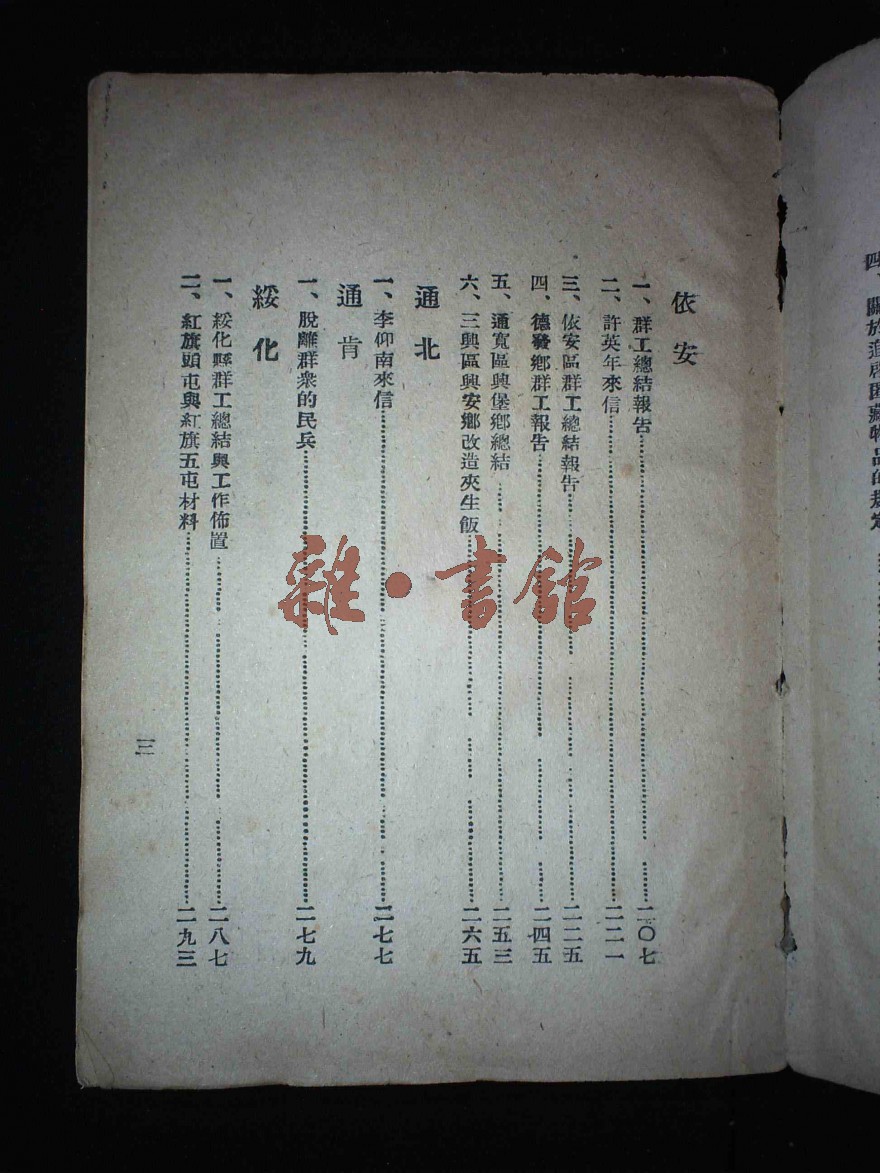 四、關於追
依安
一、群工總結報告…………二〇七
二、許英年來信…………二二一
三、依安區群工總結報告…………二二五
四、德發鄉群工報告…………二四五
五、通寬區興堡鄉總結…………二五三
六、三興區興安鄉改造夾生飯…………二六五
通北
一、李仰南來信…………二七七
通肯
一、脫離群衆的民兵…………二七九
綏化
一、綏化縣群工總結與工作佈置…………二八七
二、紅旗頭屯與紅旗五屯材料…………二九三
三
雜·書館